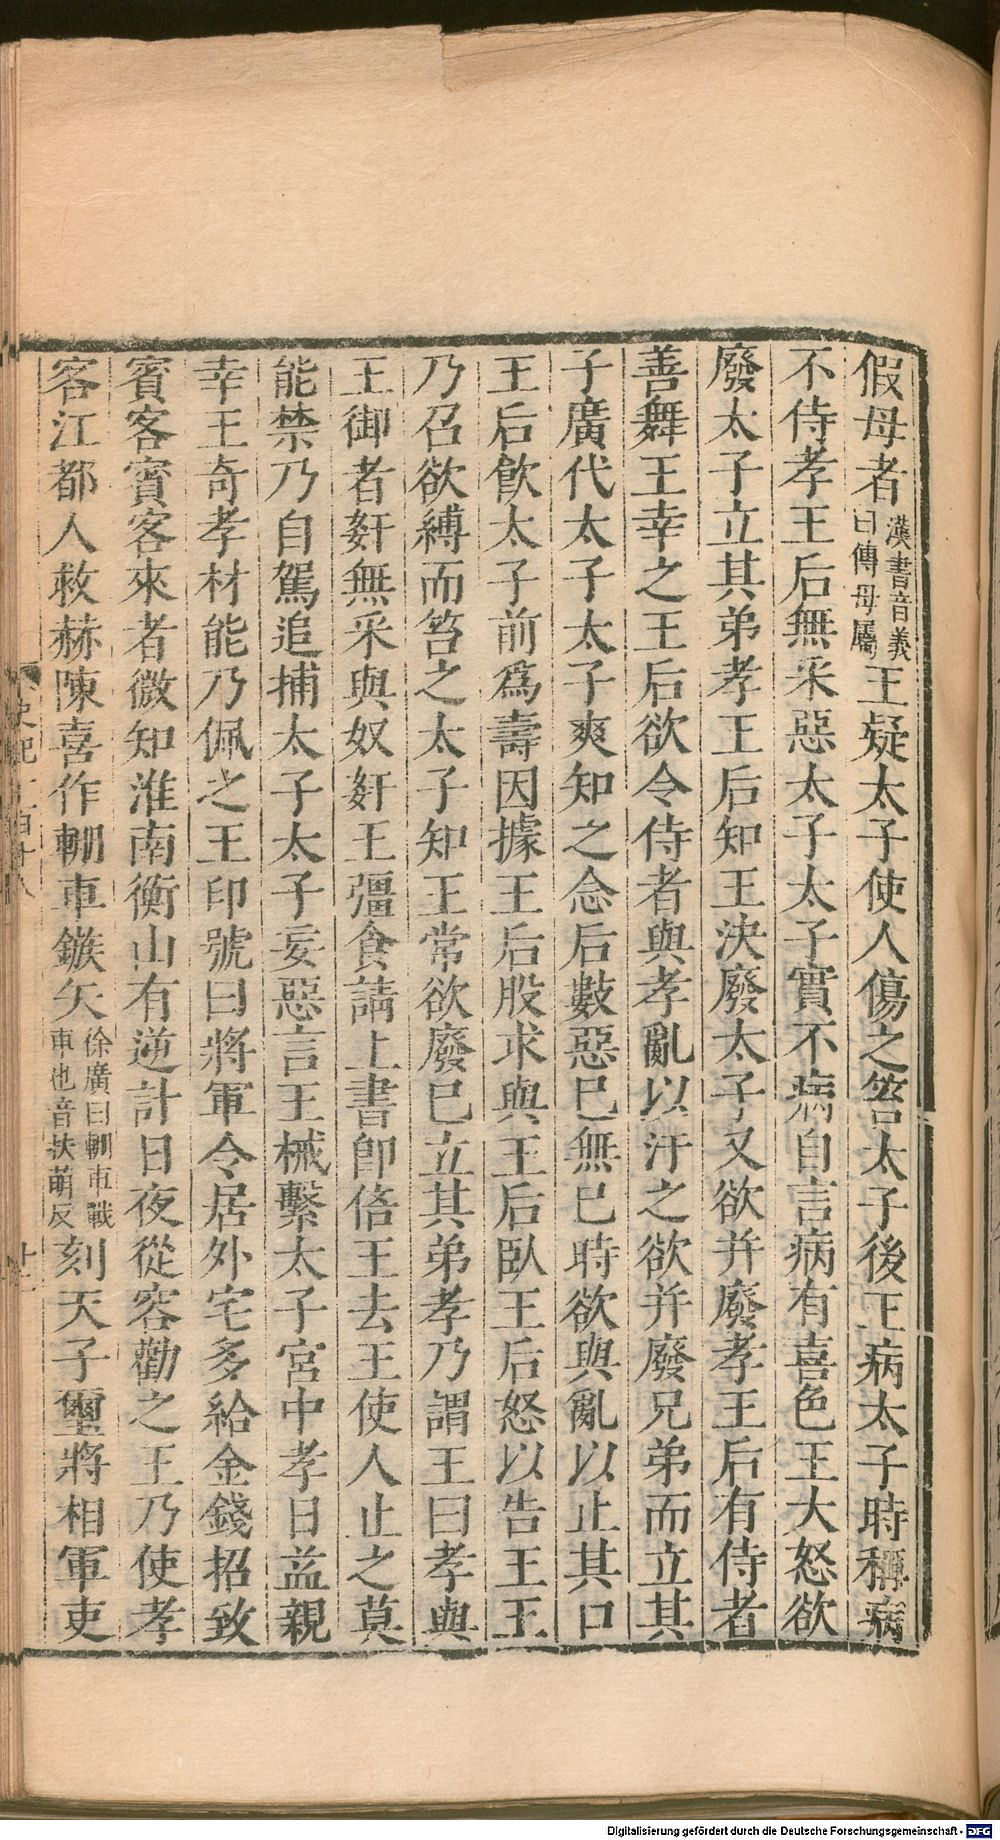 假母者漢書音義曰傅母屬王疑太子使人傷之笞太子後王病太子時稱病
不侍孝王后無采惡太子太子實不病自言病有喜色王大怒欲
廢太子立其弟孝王后知王決廢太子又欲并廢孝王后有侍者
善舞王幸之王后欲令侍者與孝亂以汙之欲并廢兄弟而立其
子廣代太子太子爽知之念后數惡已無已時欲與亂以止其口
王后飮太子前爲壽因據王后股求與王后臥王后怒以告王王
乃召欲縛而笞之太子知王常欲廢已立其弟孝乃謂王曰孝與
王御者姧無采與奴姧王彊食請上書卽倍王去王使人止之莫
能禁乃自駕追捕太子太子妄惡言王械繫太子宮中孝日益親
幸王奇孝材能乃佩之王印號曰將軍令居外宅多給金錢招致
賓客賓客來者微知淮南衡山有逆計日夜從容勸之王乃使孝
客江都人救赫陳喜作輣車鏃矢徐廣曰輣車戰車也音扶萌反刻天子璽將相軍吏
史記一百十八
十二
Digitalisierung gefördert durch die Deutsche Forschungsgemeinschaft - DFG